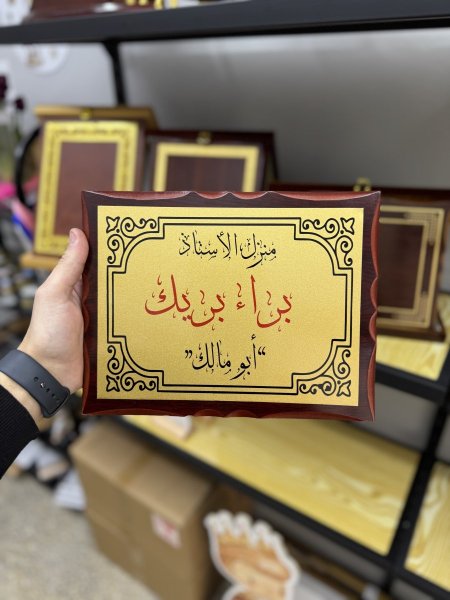 منزل الأستاذ
براء بريك
“أبو مالك”